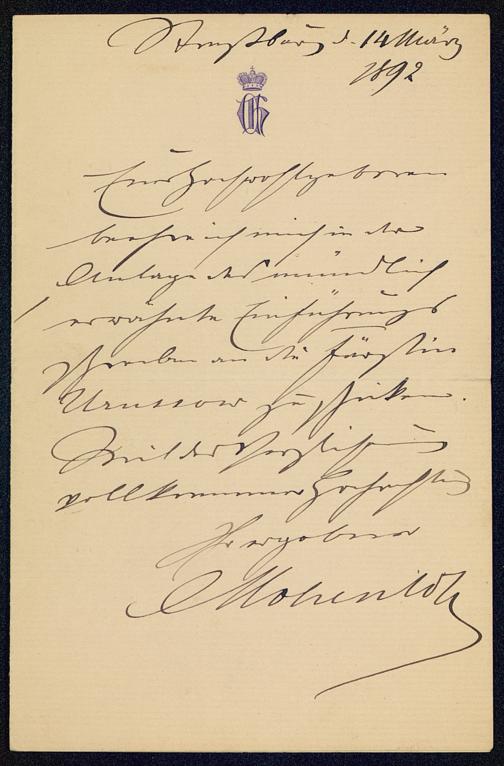 Straßburg d. 14 März
1892
CH
Euer Hochwohlgeboren
beehre ich mich in der
Anlage das mündlich
erwähnte Einführungs
schreiben an die Fürstin
Urussow zu schicken.
Mit der Versicherung
vollkommener Hochachtung
Ihr ergebener
CHohenlohe